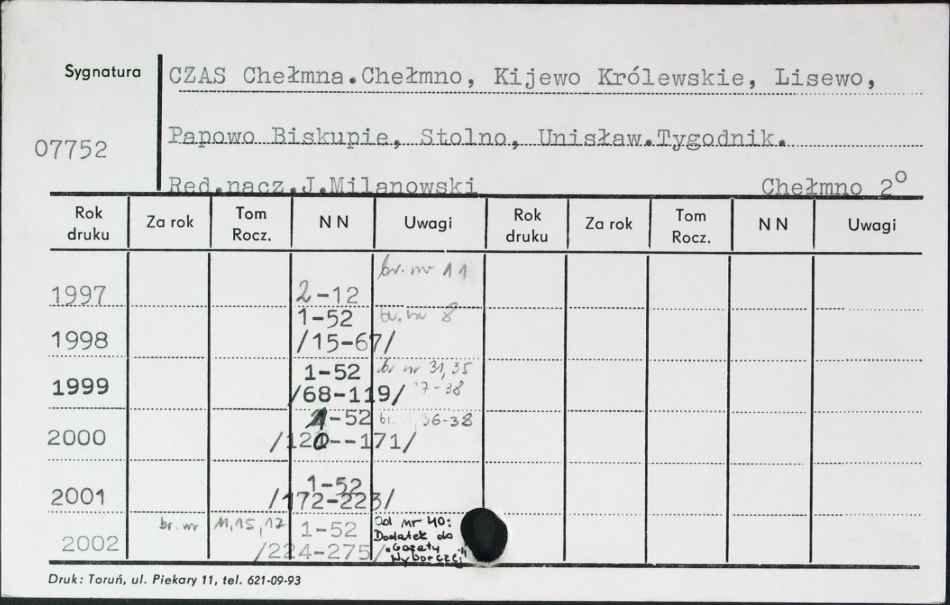 Sygnatura CZAS Chełmna.Chełmno, Kijewo Królewskie, Lisewo,
07752 Papowo Biskupie, Stolno, Unisław.Tygodnik.
Red.nacz.J.Milanowski Chełmno 2°
Rok druku Za rok Tom Rocz. NN Uwagi Rok druku Za rok Tom Rocz. NN Uwagi
br. nr 11
1997 2-12
1-52 br. nr 8
1998 /15-67/
1-52 br nr 31,35
1999 /68-119/ 37-38
1-52 br. 36-38
2000 /120--171/
1-52
2001 /172-223/
br. nr 11,15,17 1-52 Od nr 40:
Dodatek do
2002 /224-275/ "Gazety
Wyborczej"
Druk: Toruń, ul. Piekary 11, tel. 621-09-93